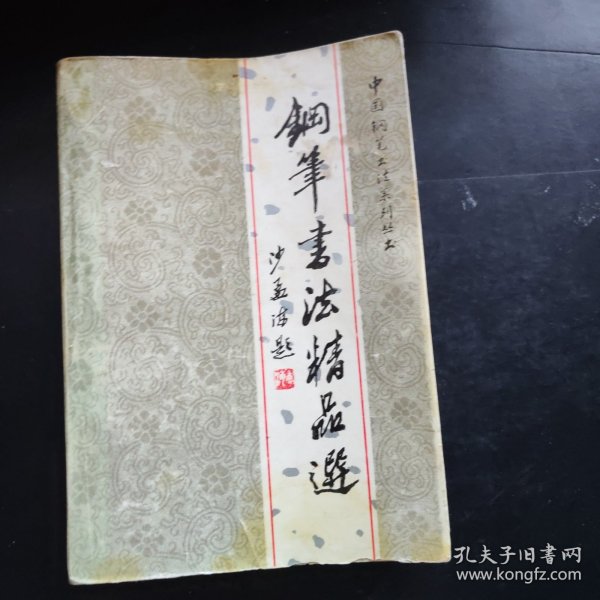 中国钢笔书法系列丛书
鋼筆書法精品選
沙孟海題
孔夫子旧書网
www.kongfz.com